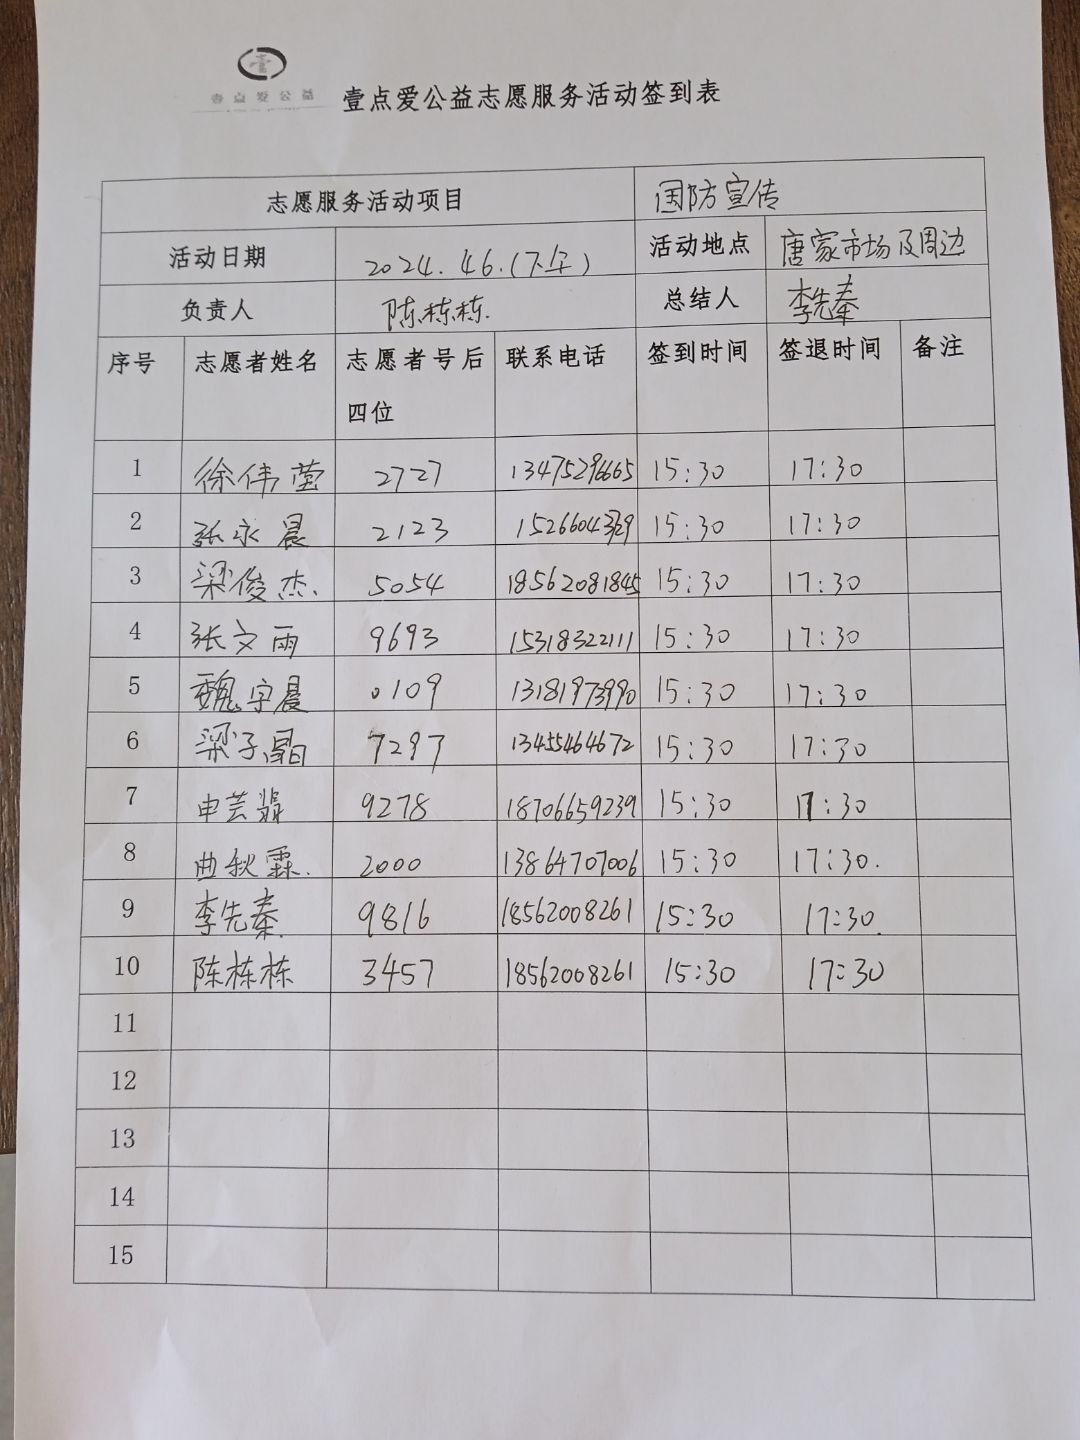 壹
壹点爱公益
壹点爱公益志愿服务活动签到表
志愿服务活动项目 国防宣传
活动日期 2024.4.6.(下午) 活动地点 唐家市场及周边
负责人 陈栋栋. 总结人 李先秦
序号 志愿者姓名 志愿者号后四位 联系电话 签到时间 签退时间 备注
1 徐伟莹 2727 13475296665 15:30 17:30
2 张永晨 2123 15:30 17:30
3 梁俊杰. 5054 18562081845 15:30 17:30
4 张文雨 9693 15318322111 15:30 17:30
5 魏宇晨 0109 13181973990 15:30 17:30
6 梁子 7297 13455464672 15:30 17:30
7 申芸翡 9278 18706659239 15:30 17:30
8 曲秋霖. 2000 13864707006 15:30 17:30.
9 李先秦. 9816 18562008261 15:30 17:30.
10 陈栋栋 3457 18562008261 15:30 17:30
11
12
13
14
15